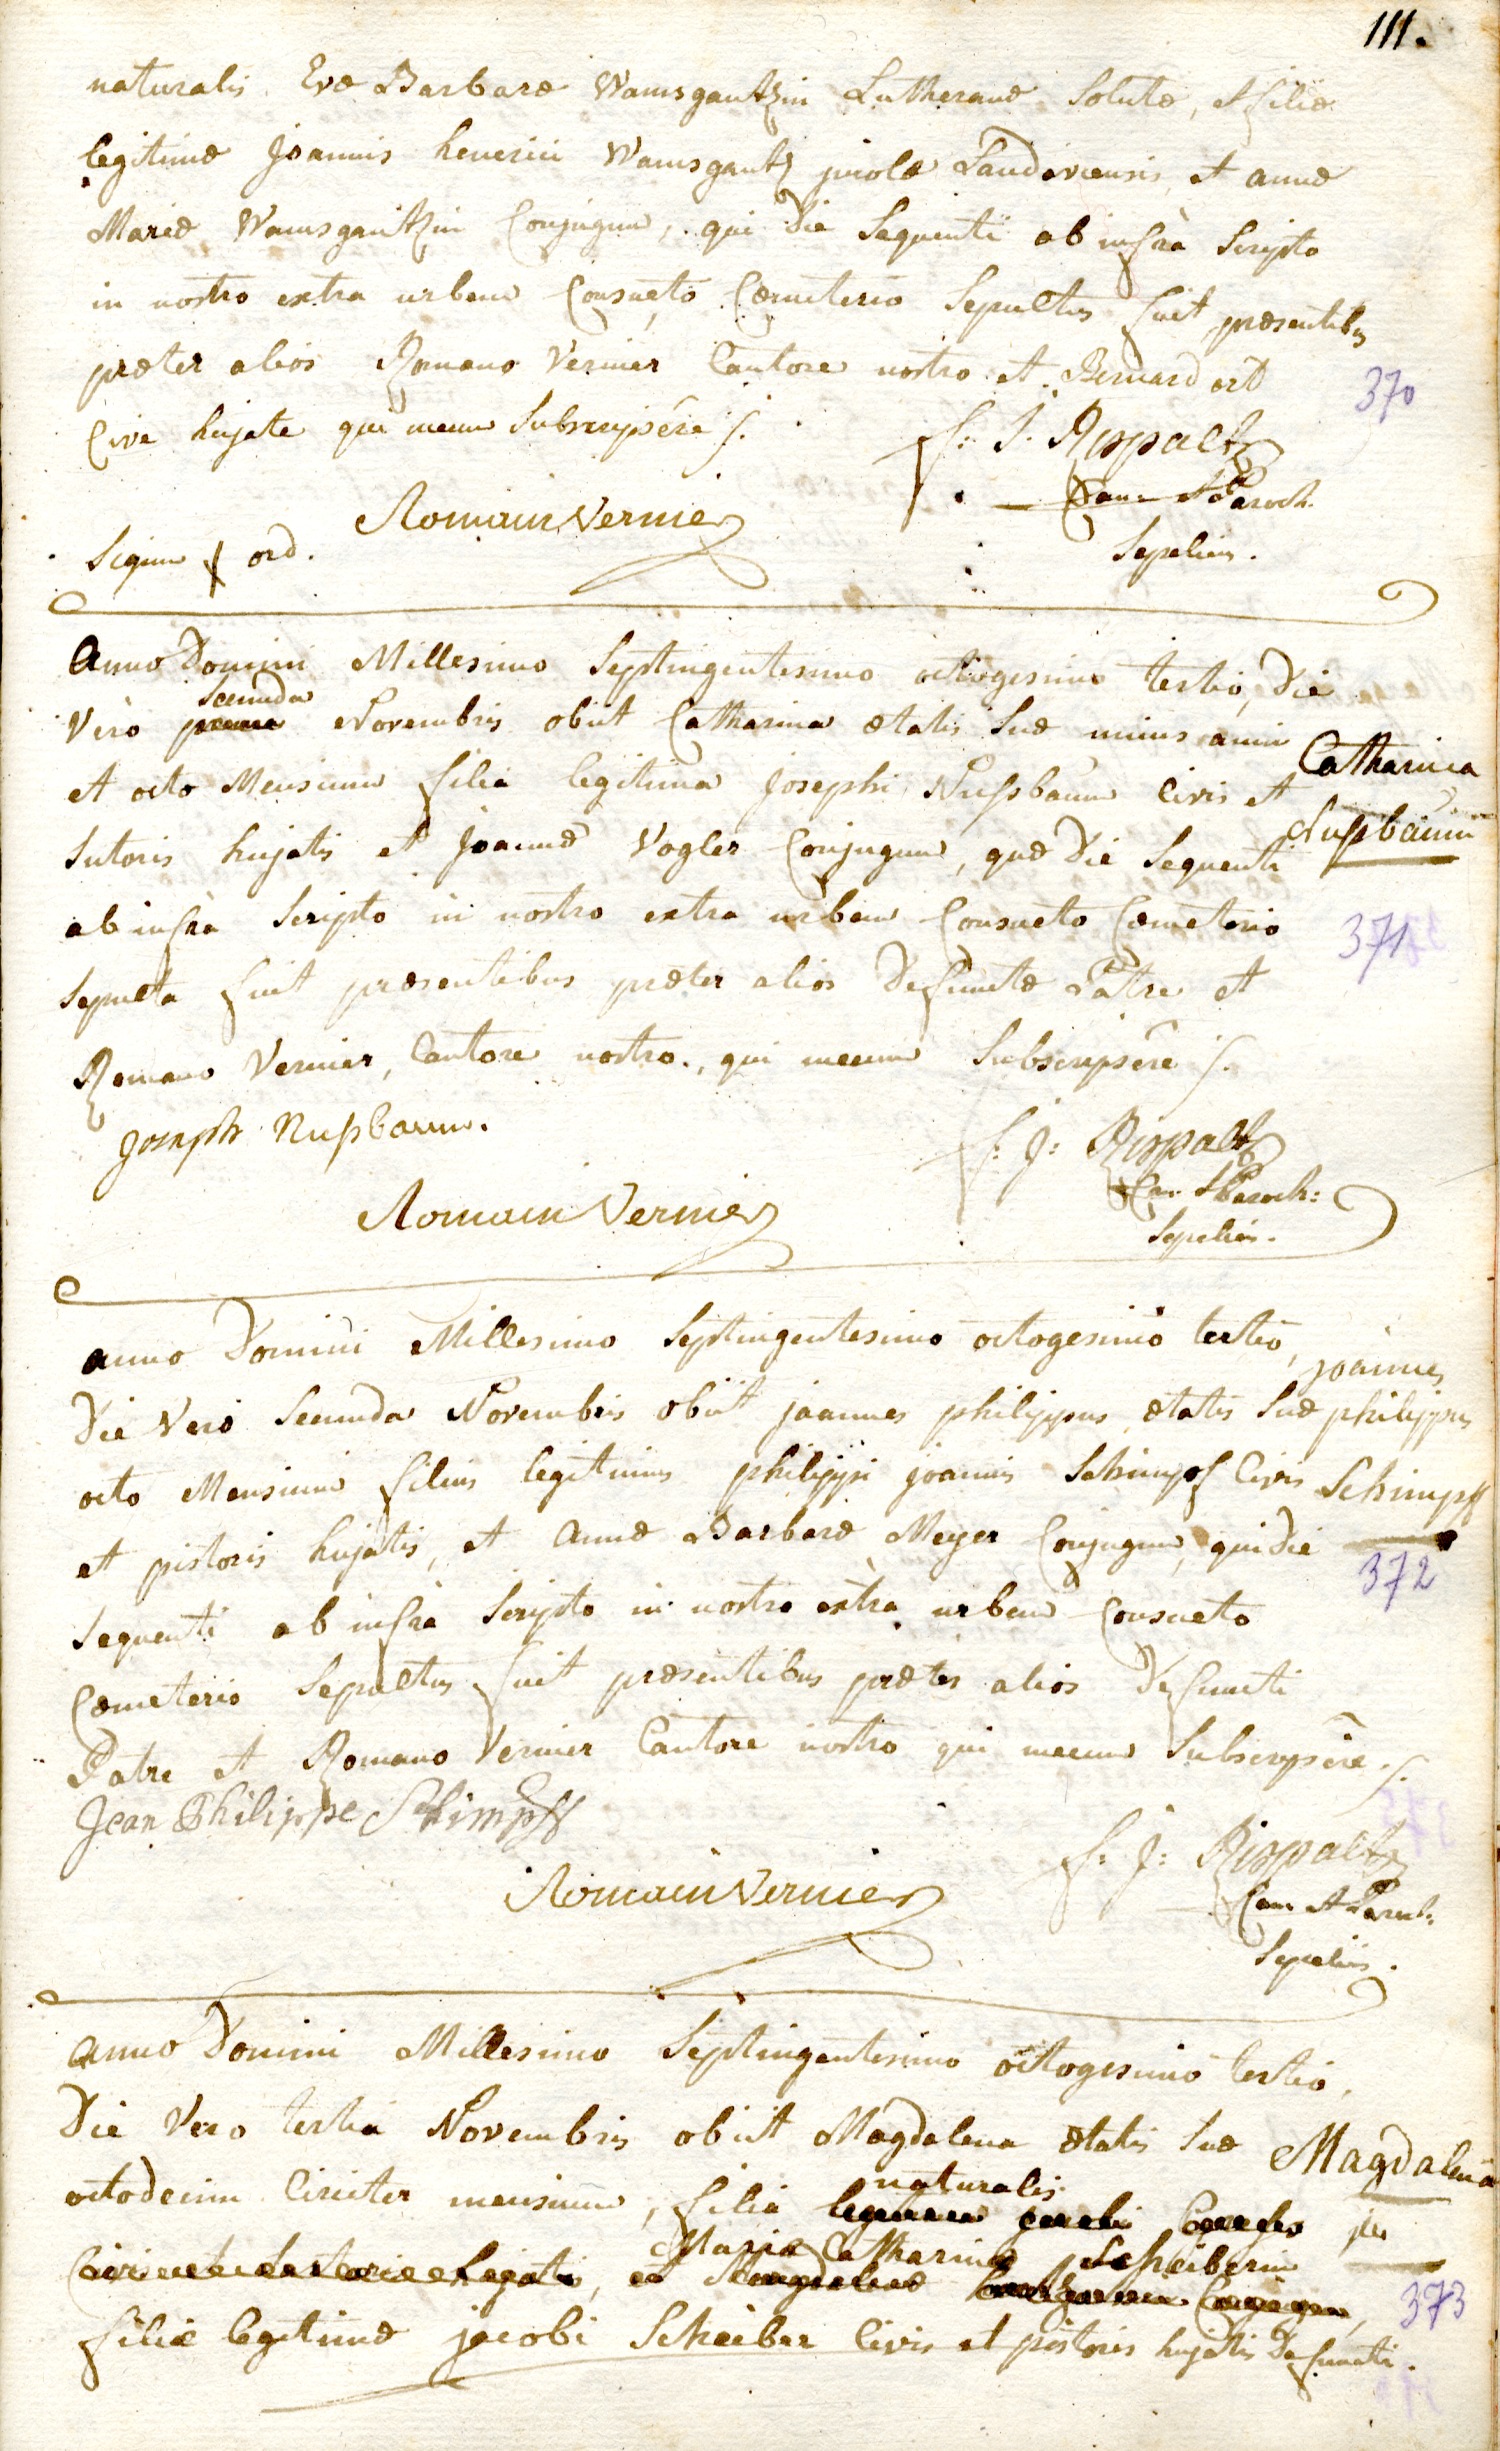 111.
naturalis Evæ Barbaræ Wamsgantzin Lutheranæ Solutæ, et filiæ
legitimæ Joannis henrici Wamsgantz Landaviensis, et annæ
Mariæ Wamsgantzin Conjugum, qui die Sequenti ab infrà Scripto
in nostro extra urbem Consueto Cœmeterio Sepultus fuit præsentibus
præter alios Romano Vernier Cantore nostro et Bernard ord
Cive hujate qui mecum Subscripsêre /.
370
f: J: Rispaltz
Can et Paroch.
Romain Vernier
Sepeliens.
Signum + ord.
Anno Domini Millesimo Septingentesimo octogesimo tertio, Die
secunda
Verò prima Novembris obiit Catharina ætatis Suæ unius anni
Catharina
et octo Mensium filia legitima Josephi Nußbaum Civis et
Nußbaum
Sutoris hujatis et Joannæ Vogler Conjugum, quæ Die Sequenti
ab infrà Scripto in nostro extra urbem Consueto Cœmeterio
371
Sepulta fuit præsentibus præter alios Defunctæ Patre et
Romano Vernier, Cantore nostro, qui mecum Subscripsêre /.
Joseph Nußbaum.
f: J: Rispaltz
Can et Paroch:
Romain Vernier
Sepeliens.
anno Domini Millesimo Septingentesimo octogesimo tertio,
joannes
Die Vero Secunda Novembris obiit joannes philippus ætatis Suæ
philippus
octo Mensium filius legitimus philippi joannis Schimpf Civis
Schimpff
et pistoris hujatis, et Annæ Barbaræ Meyer Conjugum, qui die
372
Sequenti ab infrà Scripto in nostro extra urbem Consueto
Cœmeterio Sepultus fuit præsentibus præter alios Defuncti
Patre et Romano Vernier Cantore nostro qui mecum Subscripsêre /.
Jean Philippe Schimpff
f: J: Rispaltz
Romain Vernier
Can et Paroch:
Sepeliens.
anno Domini Millesimo Septingentesimo octogesimo tertio,
Die Vero tertia Novembris obiit Magdalena ætatis Suæ
Magdalena
naturalis
octodecim Circiter mensium, filia legitima
Mariæ Catharinæ Scheiberin
373
filiæ legitimæ jacobi Scheiber Civis et pistoris hujatis Defuncti.